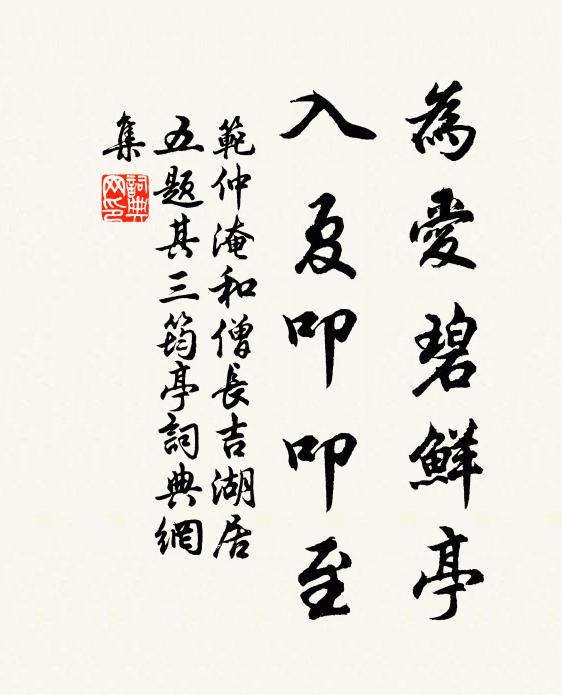 為愛碧鮮亭
入夏叩叩至
範仲淹和僧長吉湖居
五题其三筠亭詞典網
集
詞典网印